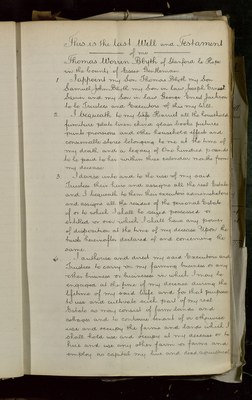 This is the last Will and Testament
of me
Thomas Worrin Blyth of Stanford le Hope
in the County of Essex Gentleman
1. I appoint my Son Thomas Blyth my Son
Samuel John Blyth my Son in law Joseph
and my Son in law George
to be Trustees and Executors of this my Will
2. I bequeath to my Wife all the household
furniture plate linen china glass books pictures
prints provisions and other household effects and
consumable stores belonging to me at the time of
my death and a legacy of One hundred pounds
to be paid to her within three calendar months from
my decease
3. I devise unto and to the use of my said
Trustees their heirs and assigns all the real Estate
and I bequeath to them their executors administrators
and assigns all the residue of the personal Estate
of or to which I shall be seized possessed or
entitled or over which I shall have any power
of disposition at the time of my decease Upon the
trusts hereinafter declared of and concerning the
same
4. I authorize and direct my said Executors and
Trustees to carry on my farming business or any
other business or businesses in which I may be
engaged at the time of my decease during the
lifetime of my said Wife and for that purpose
to use and cultivate such part of my real
Estate as may consist of farm lands and
cottages and to continue tenant of or otherwise
use and occupy the farms and lands which I
shall hold use and occupy at my decease or to
hire and use any other farm or farms and
employ as capital my live and dead agricultural